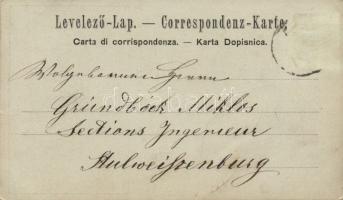 Levelező-Lap. — Correspondenz-Karte.
Carta di corrispondenza. — Karta Dopisnica.
Wolgeborenen Herrn
Gründböck Miklos
Sections Ingenieur
Stulweissenburg